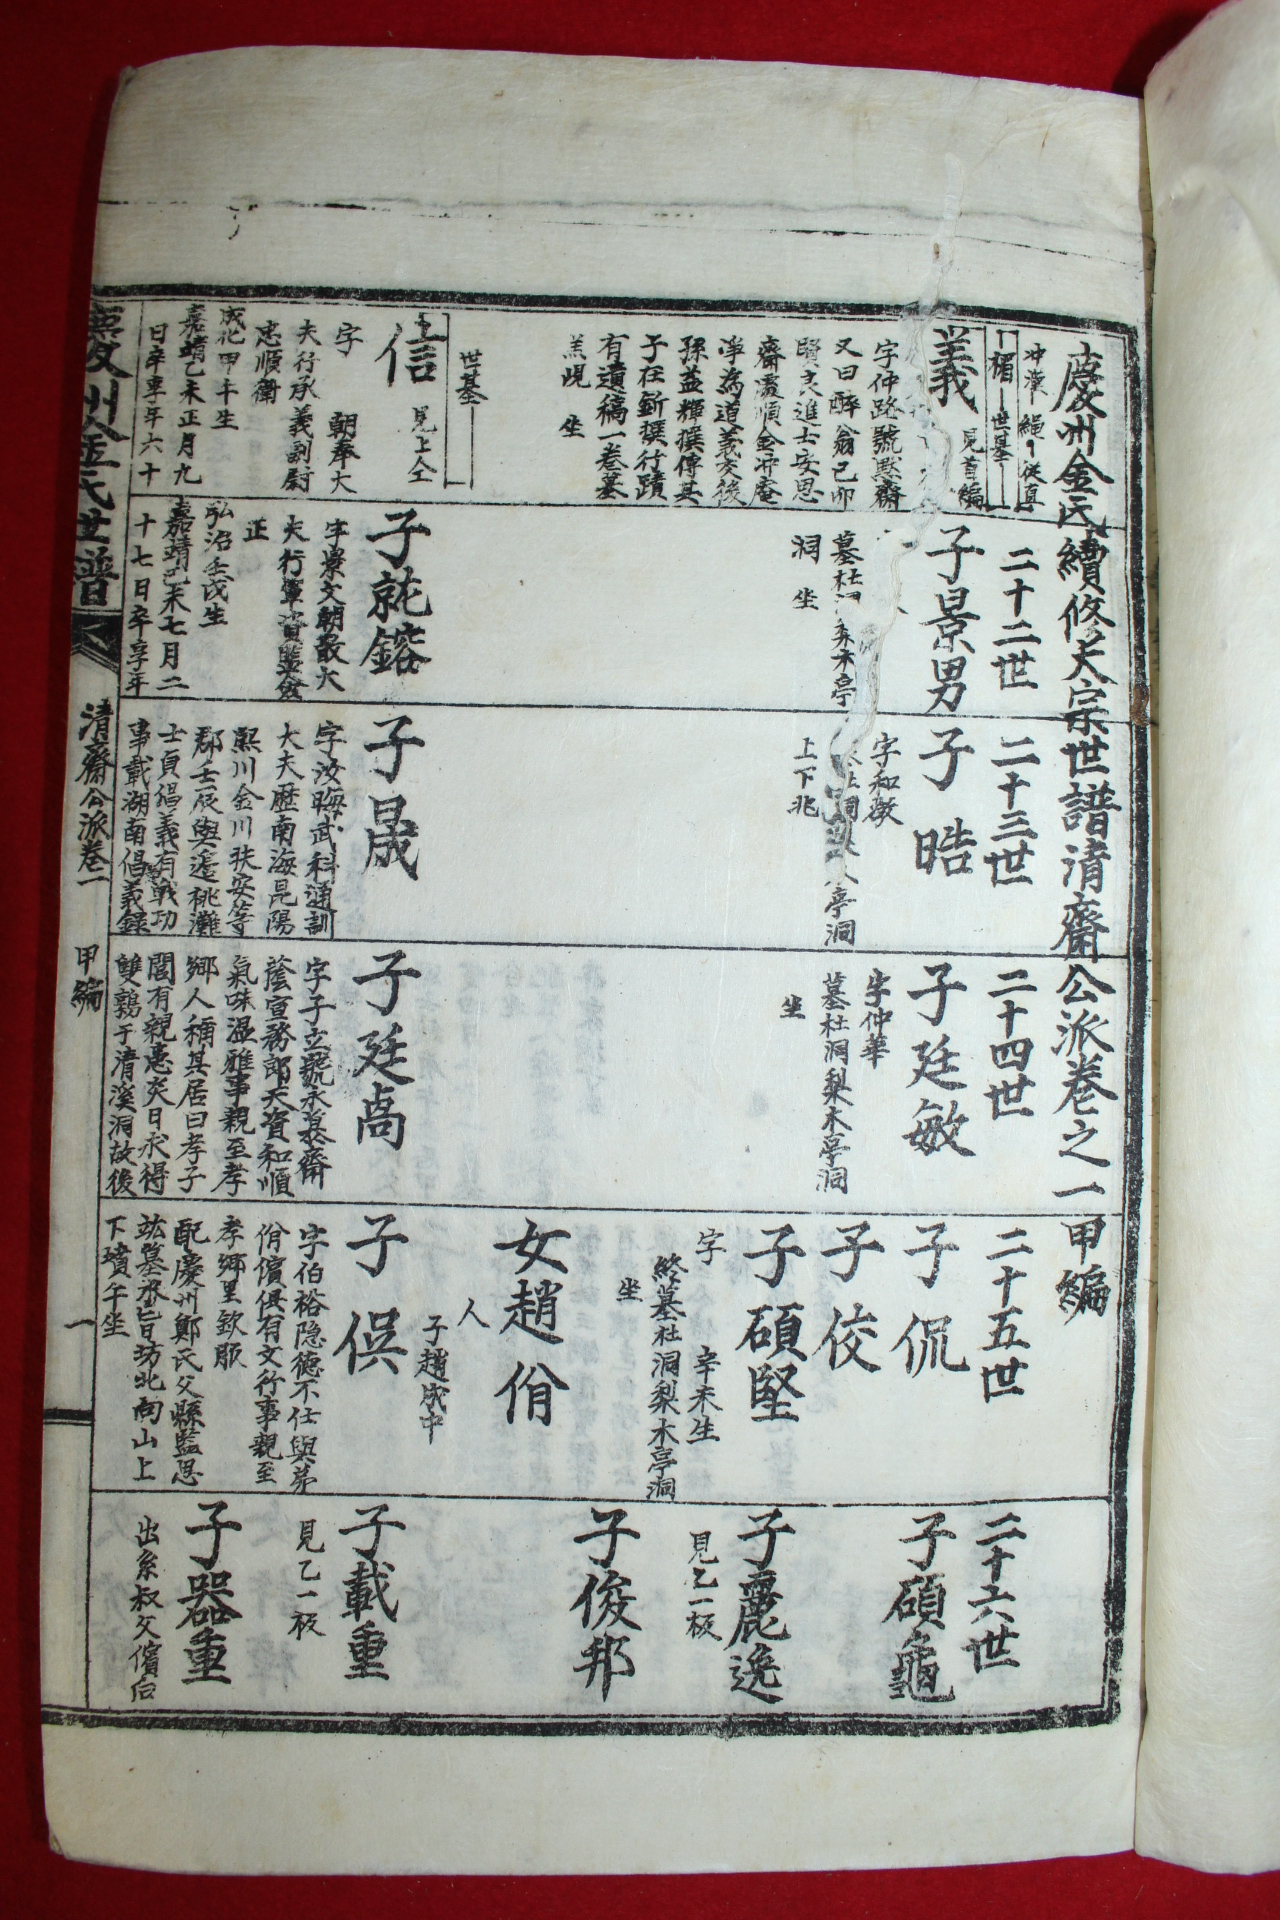 慶州金氏續修大宗世譜清齋公派卷之一 甲編
二十二世
二十三世
二十四世
二十五世
二十六世
楣 世基
義 見首編
字仲路號默齋
又曰醉翁己卯
賢良進士安思
齋處順金冲庵
淨為道義交後
孫益輝撰傳其
子在新撰行蹟
有遺稿一卷墓
羔峴 坐
子景男
洞 坐
子晧
字和徵
上下兆
子廷敏
字仲華
墓杜洞梨木亭洞
坐
子侃
子佼
子碩堅
字 辛未生
終墓杜洞梨木亭洞
坐
女趙佾
人
子趙成中
子碩龜
子麗逸
見乙一板
子俊邦
世基
信 見上仝
字 朝奉大
夫行承義副尉
忠順衛
成化甲午生
嘉靖乙未正月九
日卒享年六十
子就鎔
字景文朝散大
夫行軍資監僉
正
弘治壬戌生
嘉靖己未七月二
十七日卒享年
子晟
字汝晦武科通訓
大夫歷南海昆陽
熙川金川扶安等
郡壬辰與邊桃灘
士貞倡義有戰功
事載湖南倡義錄
子廷卨
字子立號永慕齋
蔭宣務郎天資和順
氣味温雅事親至孝
鄉人稱其居曰孝子
閭有親患炎日求得
雙鶉于清溪洞故後
子俁
字伯裕隐德不仕與弟
佾儐俱有文行事親至
孝鄉里欽服
配慶州鄭氏父縣監思
竑墓丞旨坊北向山上
下墳午坐
子載重
見乙一板
子器重
出系叔父儐后
慶州金氏世譜
清齋公派卷一
甲編
一